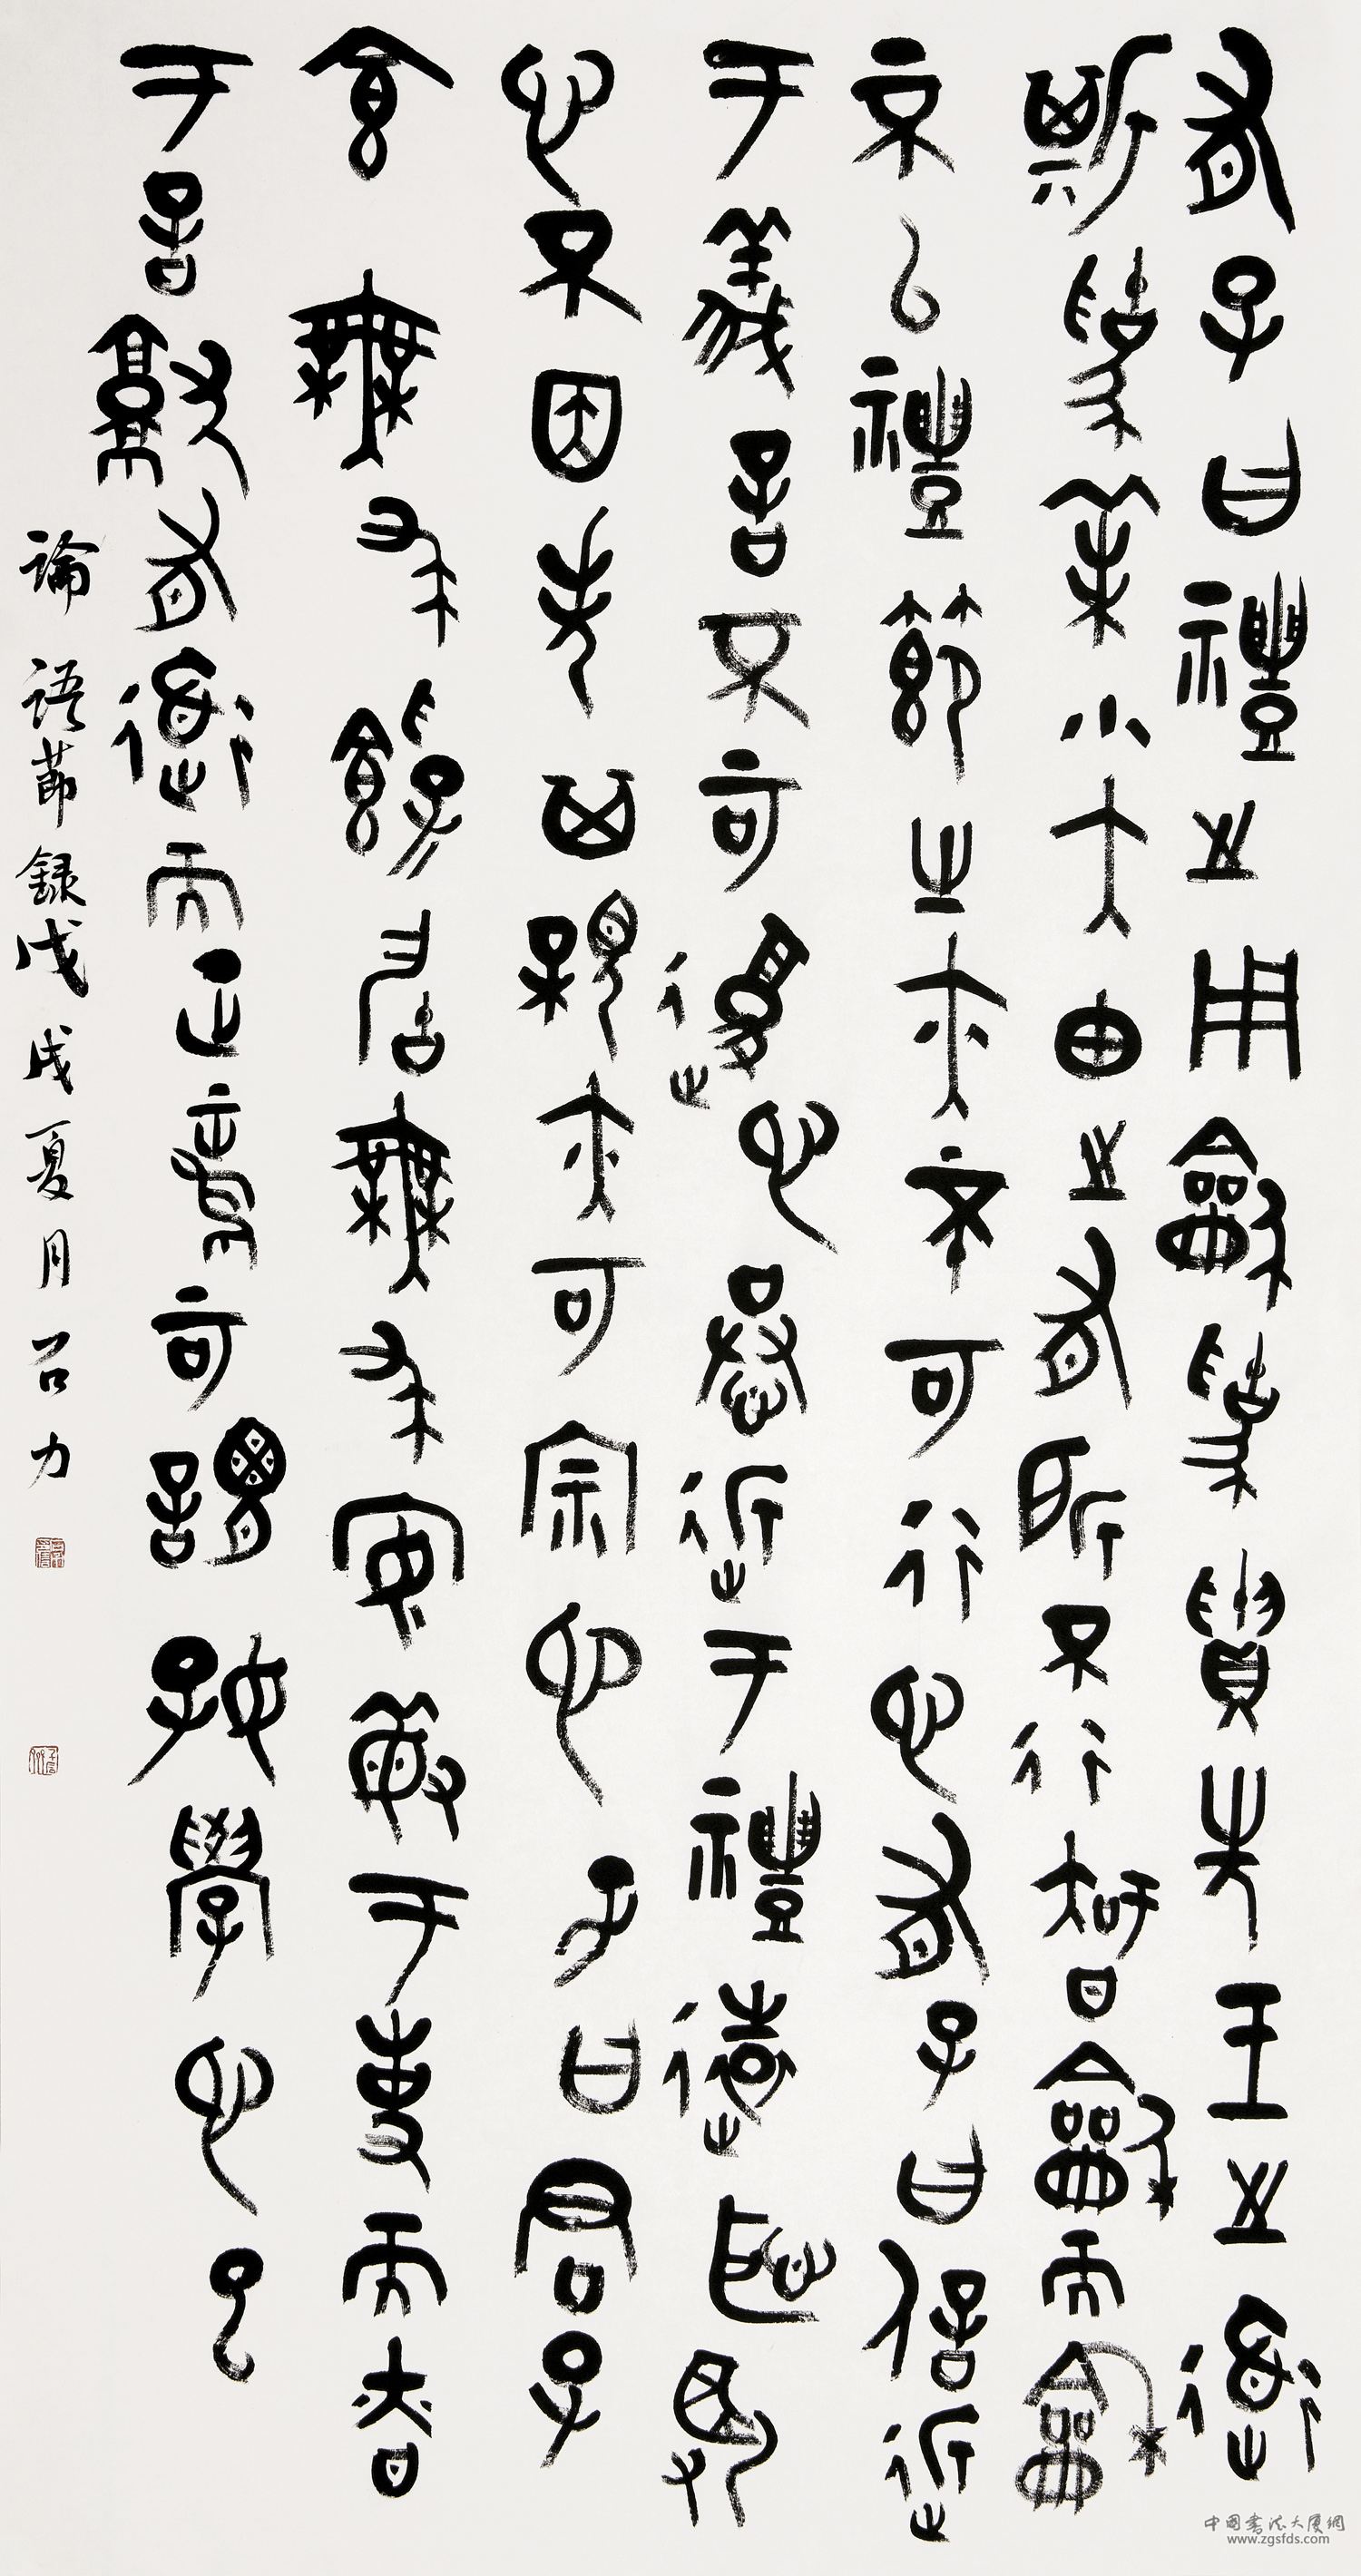 有子曰禮之用龢為貴先王之道
斯為美小大由之有所不行智龢而龢
不以禮節之亦不可行也有子曰信近
于義言不可復也恭近于禮遠恥辱
也不因失其親亦可宗也子曰君子
食無求飽居無求安敏于事而慎
于言就有道而正焉可謂好學也已
論語節錄戊戌夏月召力
中國書法大廈網
www.zgsfds.com